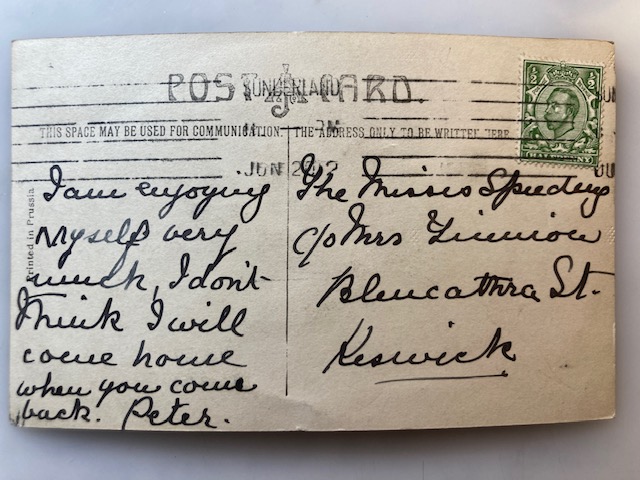 POST CARD.
SUNDERLAND
THIS SPACE MAY BE USED FOR COMMUNICATION.
THE ADDRESS ONLY TO BE WRITTEN HERE
JUN 2
Printed in Prussia
I am enjoying
myself very
much, I don't
think I will
come home
when you come
back. Peter.
The Misses Speeding
c/o Mrs
Blencathra St.
Keswick
½ ½
HALFPENNY